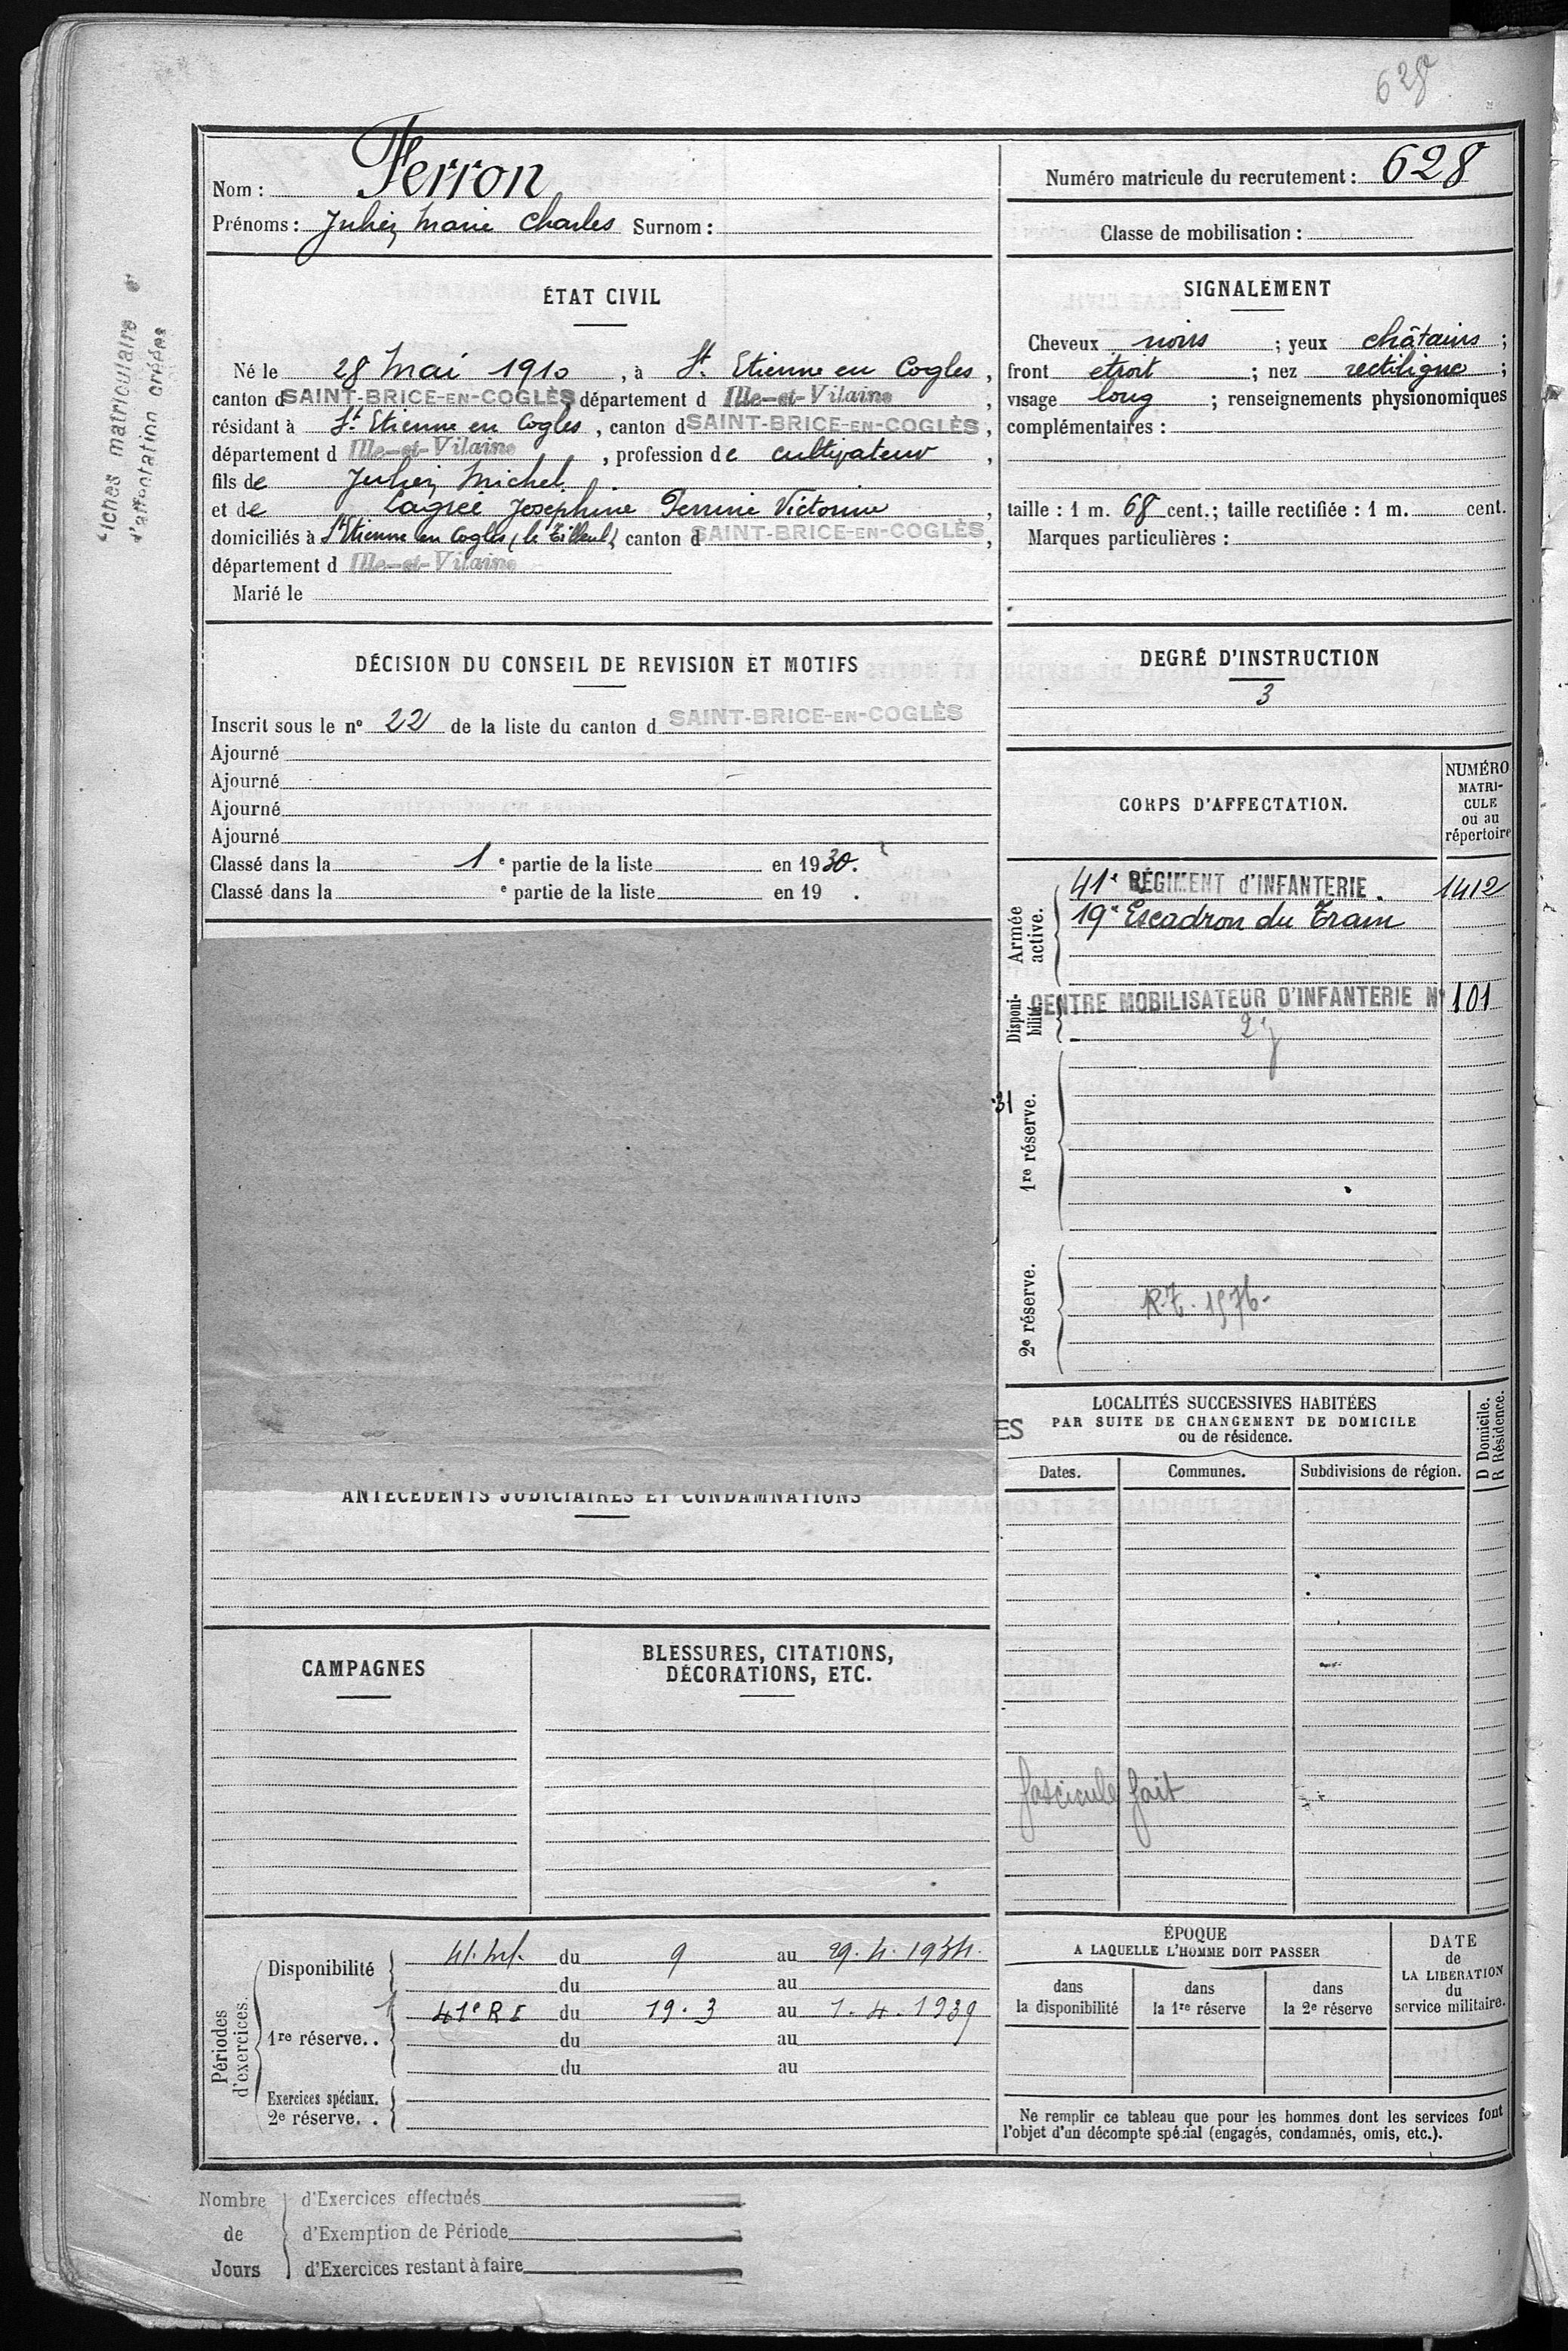 628
Fiches matriculaire
d'affectation créées
Nom : Ferron
Prénoms : Julien, Marie Charles Surnom :
Numéro matricule du recrutement : 628
Classe de mobilisation :
ÉTAT CIVIL
Né le 28 Mai 1910, à St Etienne en Cogles,
canton d SAINT-BRICE-EN-COGLÈS département d Ille-et-Vilaine,
résidant à St Etienne en Cogles, canton d SAINT-BRICE-EN-COGLÈS,
département d Ille-et-Vilaine, profession de cultivateur,
fils de Julien, Michel
et de Lagrée Joséphine Perrine Victorine,
domiciliés à St Etienne en Cogles (le Tilleul), canton d SAINT-BRICE-EN-COGLÈS,
département d Ille-et-Vilaine
Marié le
SIGNALEMENT
Cheveux noirs ; yeux châtains ;
front étroit ; nez rectiligne ;
visage long ; renseignements physionomiques
complémentaires :
taille : 1 m. 68 cent.; taille rectifiée : 1 m. cent.
Marques particulières :
DÉCISION DU CONSEIL DE REVISION ET MOTIFS
Inscrit sous le n° 22 de la liste du canton d SAINT-BRICE-EN-COGLÈS
Ajourné
Ajourné
Ajourné
Ajourné
Classé dans la 1 e partie de la liste en 1930.
Classé dans la e partie de la liste en 19 .
DEGRÉ D'INSTRUCTION
3
CORPS D'AFFECTATION.
NUMÉRO
MATRI-
CULE
ou au
répertoire
Armée
active.
41e RÉGIMENT d'INFANTERIE. 1412
19e Escadron du Train
Disponi-
bilité
CENTRE MOBILISATEUR D'INFANTERIE N° 101
31
1re réserve.
2e réserve.
R.T. 1576-
ES
LOCALITÉS SUCCESSIVES HABITÉES
PAR SUITE DE CHANGEMENT DE DOMICILE
ou de résidence.
D Domicile.
R Résidence.
Dates.
Communes.
Subdivisions de région.
fascicule fait
ANTÉCÉDENTS JUDICIAIRES ET CONDAMNATIONS
CAMPAGNES
BLESSURES, CITATIONS,
DÉCORATIONS, ETC.
Périodes
d'exercices.
Disponibilité
41. Inf. du 9 au 29.4.1934.
du au
1re réserve..
41e R I du 19.3 au 1.4.1939
du au
du au
Exercices spéciaux.
2e réserve. .
ÉPOQUE
A LAQUELLE L'HOMME DOIT PASSER
dans
la disponibilité
dans
la 1re réserve
dans
la 2e réserve
DATE
de
LA LIBÉRATION
du
service militaire.
Ne remplir ce tableau que pour les hommes dont les services font
l'objet d'un décompte spécial (engagés, condamnés, omis, etc.).
Nombre
de
Jours
d'Exercices effectués
d'Exemption de Période
d'Exercices restant à faire